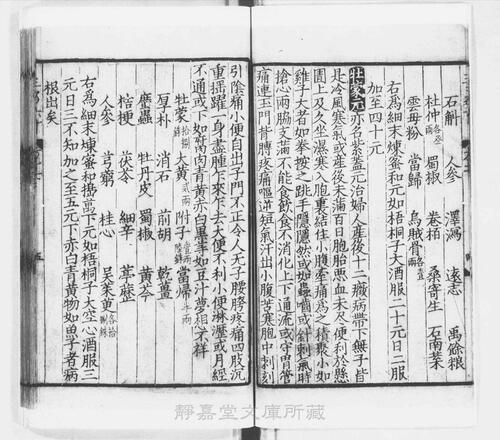 石斛 人參 澤瀉 遠志 禹餘粮
杜仲各叁兩 蜀椒 卷栢 桑寄生 石南葉
雲母粉 當歸 烏賊骨各壹兩
右爲細末煉蜜和元如梧桐子大酒服二十元日二服
加至四十元
牡蒙元亦名紫蓋元治婦人産後十二癥病帶下無子皆
是冷風寒氣或産後未滿百日胞胎惡血未尽便利於懸
圊上及久坐濕寒入胞裏結在小腹牽痛爲之積聚小如
雞子大者如拳按之跳手隱隱然或如蟲嚙或針刺氣時
搶心兩脇支滿不能食飲食不消化上下通流或守胃管
痛連玉門背膊疼痛嘔逆短氣汗出小腹苦寒胞中刺
引陰痛小便自出子門不正令人无子腰胯疼痛四肢沉
重揺躍一身盡腫乍來乍去大便不利小便淋瀝或月經
不通或下如腐肉青黃赤白黑等如豆汁夢想不祥
牡蒙 大黃貳兩 附子 當歸半兩
厚朴 消石 前胡 乾薑
䗪蟲 牡丹皮 蜀椒 黃芩
桔梗 茯苓 細辛 葶藶
人參 芎藭 桂心 吳茱萸
右爲細末煉蜜和搗萬下元如梧桐子大空心酒服三
元日三不知加之至五元下赤白青黃物如魚子者病
根出矣
靜嘉堂文庫所蔵